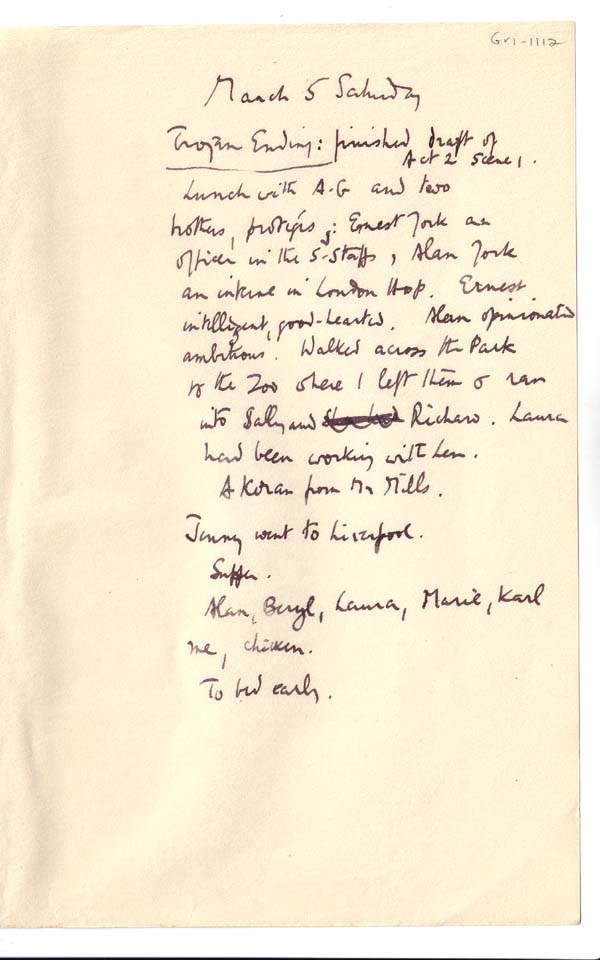 Gr1-1112
March 5 Saturday
Trojan Ending: finished draft of
Act 2 Scene 1.
Lunch with A.G and two
brothers, protégés : Ernest York an
officer in the S-Staffs, Alan York
an interne in London Hosp. Ernest
intelligent, good-hearted. Alan opinionated
ambitious. Walked across the Park
to the Zoo where I left them & ran
into Sally and Richard. Laura
had been working with Len.
A Koran from Mr Mills.
Jenny went to Liverpool.
Supper.
Alan, Beryl, Laura, Marie, Karl
me, chicken.
To bed early.